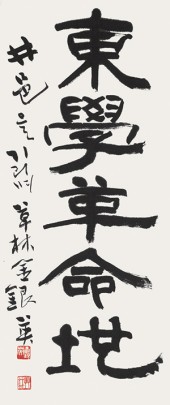 東學革命地
井邑을 기리며 草林 金銀